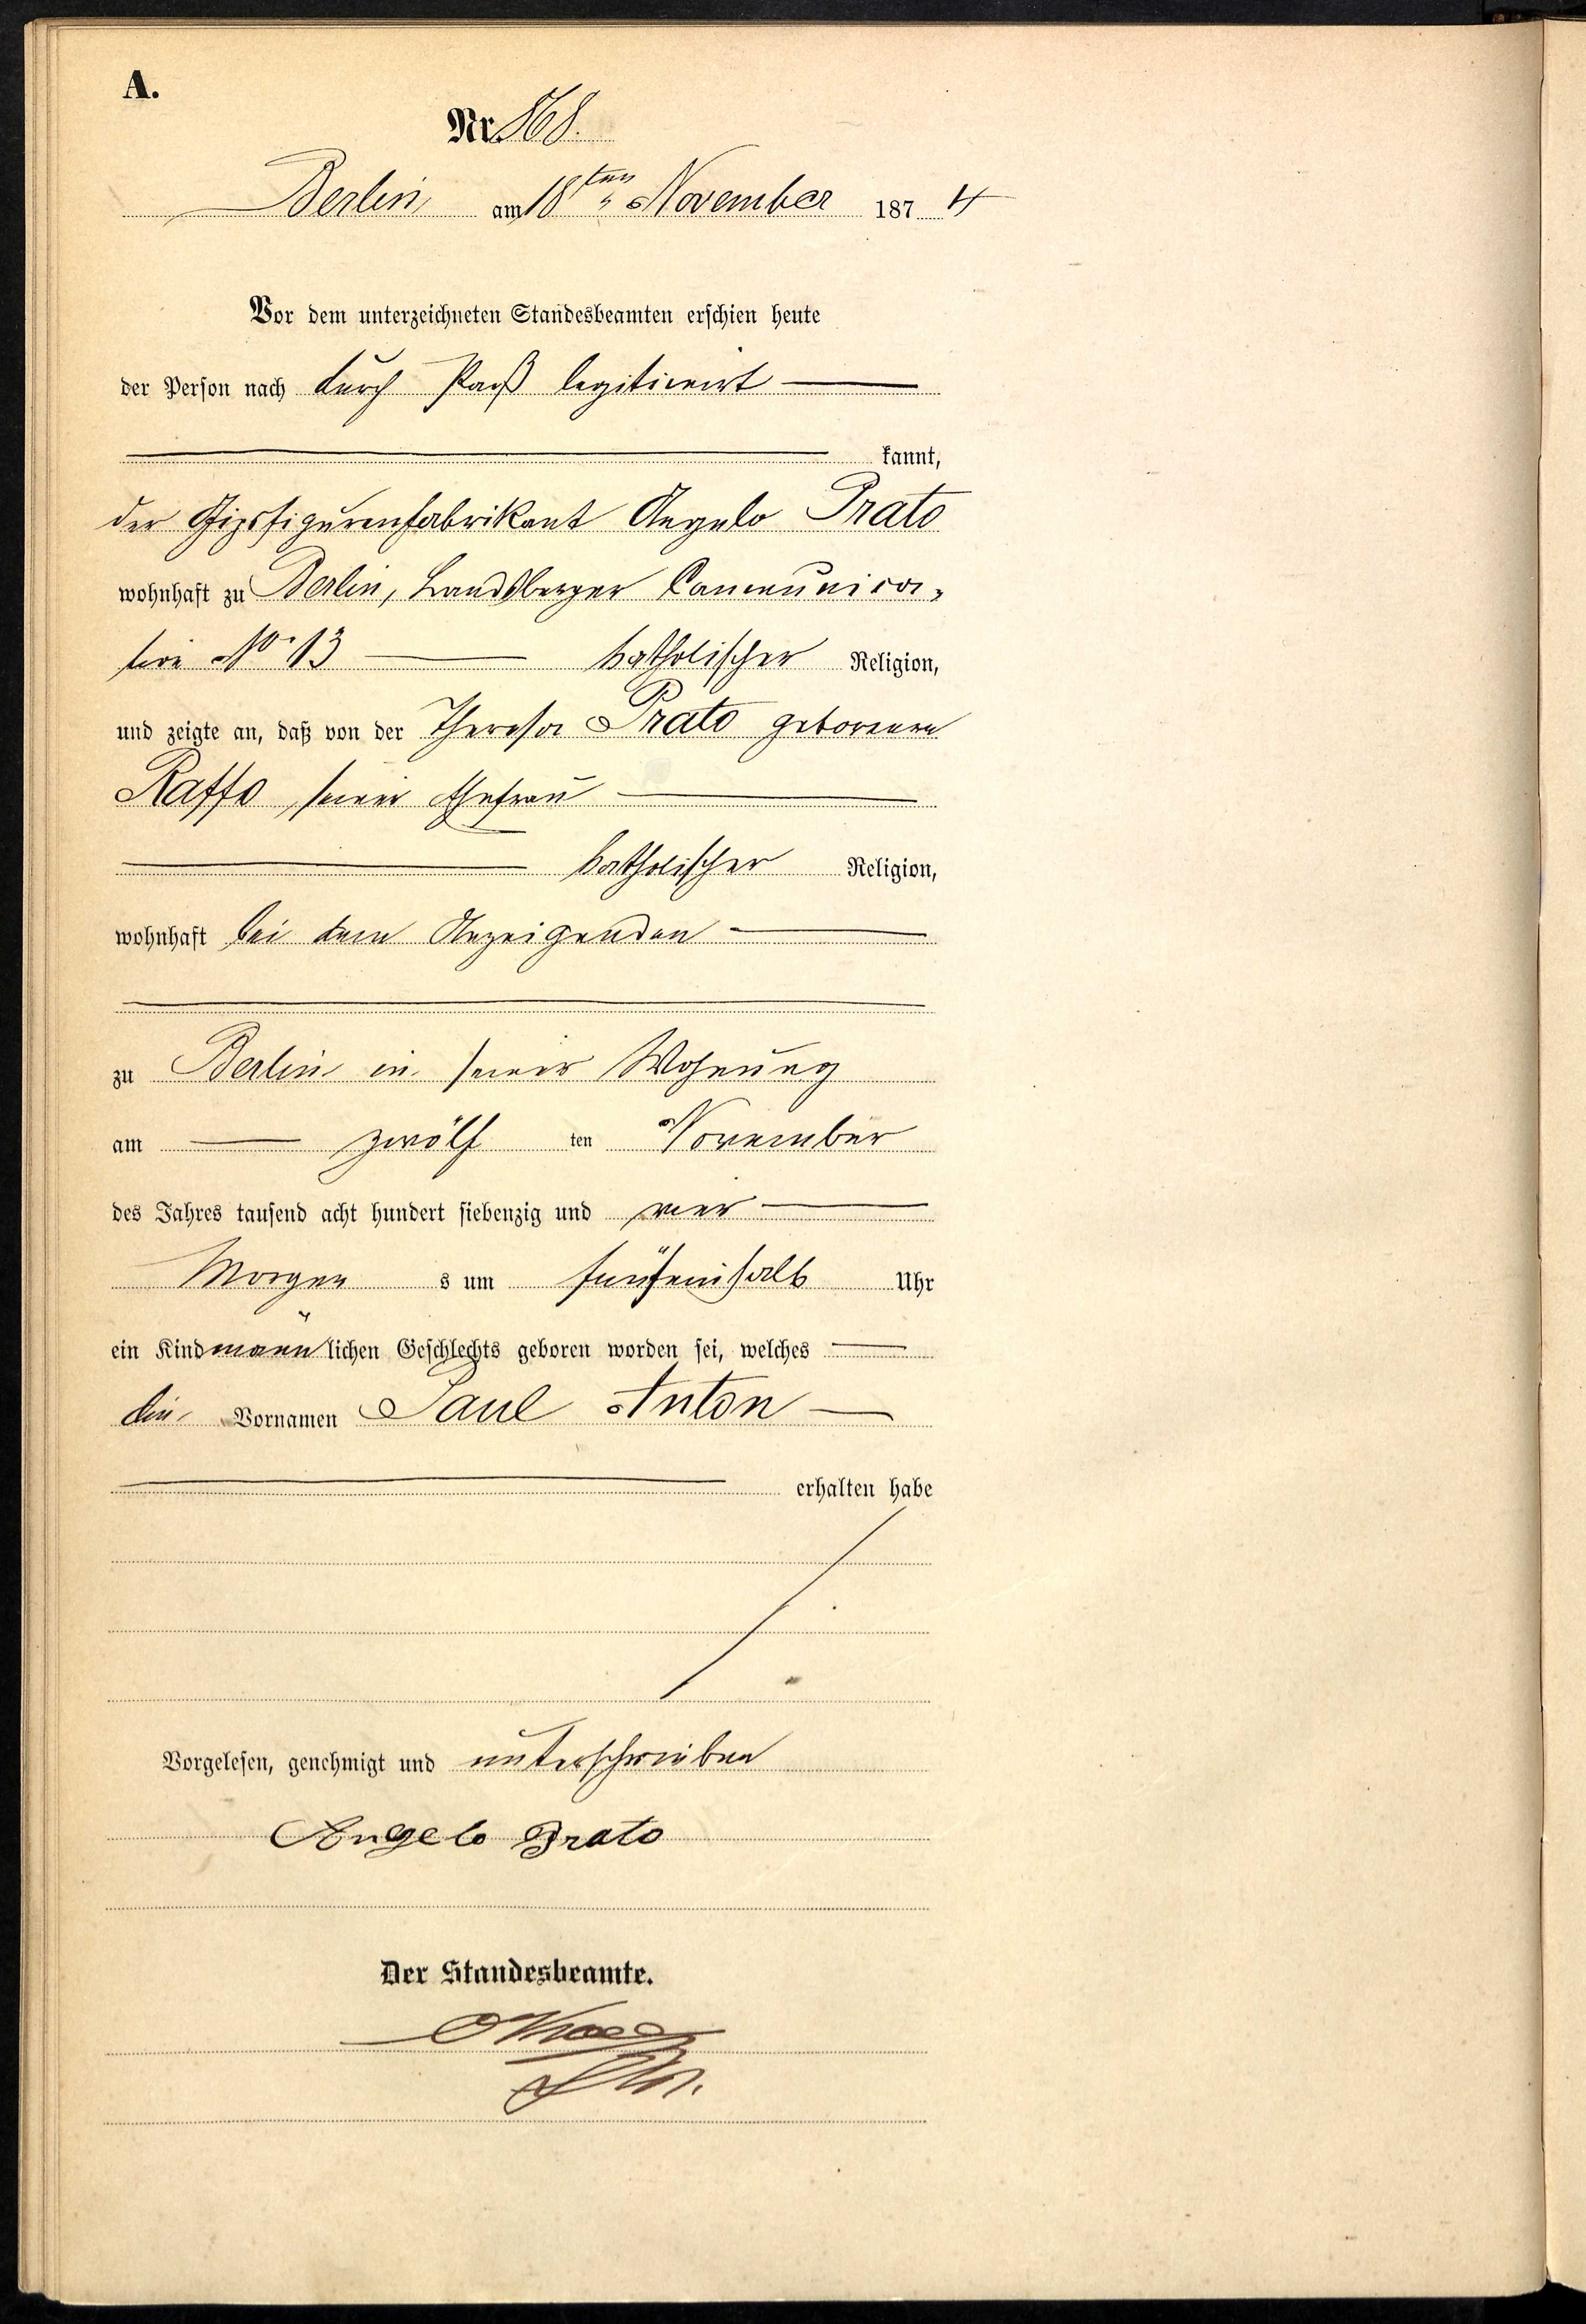 A.
Nr. 868.
Berlin, am 18ten November 1874
Vor dem unterzeichneten Standesbeamten erschien heute
der Person nach durch Paß legitimirt
kannt,
der Gipsfigurenfabrikant Angelo Prato
wohnhaft zu Berlin, Landsberger Communica-
tion No 13 katholischer Religion,
und zeigte an, daß von der Theresa Prato geborenen
Raffo, seiner Ehefrau
katholischer Religion,
wohnhaft bei dem Anzeigenden
zu Berlin in seiner Wohnung
am zwölf ten November
des Jahres tausend acht hundert siebenzig und vier
Morgen s um fünfeinhalb Uhr
ein Kind männlichen Geschlechts geboren worden sei, welches
die Vornamen Paul Anton
erhalten habe
Vorgelesen, genehmigt und unterschrieben
Angelo Prato
Der Standesbeamte.